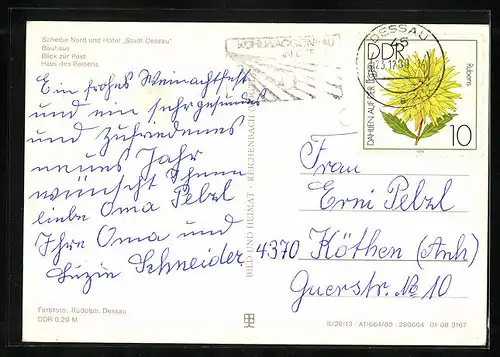 Scheibe Nord und Hotel „Stadt Dessau"
Bauhaus
Blick zur Post
Haus des Reisens
Ein frohes Weinachtsfest
und ein sehr gesundes
und zufriedenes
neues Jahr
wünscht Ihnen
liebe Oma Pelzl
Ihre Oma und
Suzin Schneider
Farbfoto: Rudolph, Dessau
DDR 0,20 M
BILD UND HEIMAT · REICHENBACH
DESSAU
DDR
DAHLIEN AUF DER
Rubens
10
Frau
Erni Pelzl
4370 Köthen (Anh)
Querstr. No 10
IV/26/13 · A1/664/80 · 280664 01 08 0167